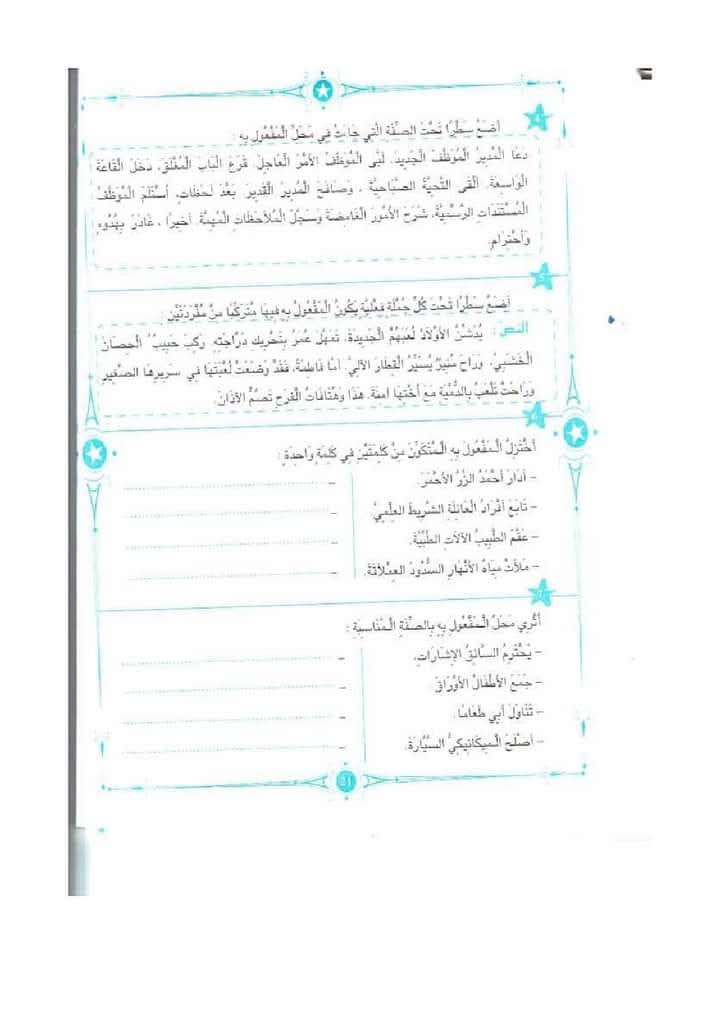 4
أَضَعُ سَطْرًا تَحْتَ الصِّفَةِ الَّتِي جَاءَتْ فِي مَحَلِّ الْمَفْعُولِ بِهِ :
دَعَا الْمُدِيرُ الْمُوَظَّفَ الْجَدِيدَ. لَبَّى الْمُوَظَّفُ الأَمْرَ الْعَاجِلَ. قَرَعَ الْبَابَ الْمُغْلَقَ. دَخَلَ الْقَاعَةَ
الْوَاسِعَةَ. أَلْقَى التَّحِيَّةَ الصَّبَاحِيَّةَ ، وَصَافَحَ الْمُدِيرَ الْقَدِيرَ. بَعْدَ لَحَظَاتٍ، اسْتَلَمَ الْمُوَظَّفُ
الْمُسْتَنَدَاتِ الرَّسْمِيَّةَ، شَرَحَ الأُمُورَ الْغَامِضَةَ وَسَجَّلَ الْمُلاَحَظَاتِ الْمُهِمَّةَ. أَخِيرًا ، غَادَرَ بِهُدُوءٍ
وَاحْتِرَامٍ.
5
أَضَعُ سَطْرًا تَحْتَ كُلِّ جُمْلَةٍ فِعْلِيَّةٍ يَكُونُ الْمَفْعُولُ بِهِ فِيهَا مُتَرَكِّبًا مِنْ مُفْرَدَتَيْنِ :
النص : يُدَشِّنُ الأَوْلاَدُ لُعَبَهُمُ الْجَدِيدَةَ. تَمَهَّلَ عُمَرُ بِتَحْرِيكِ دَرَّاجَتِهِ. رَكِبَ حَبِيبُ الْحِصَانَ
الْخَشَبِيَّ. وَرَاحَ مُنِيرٌ يُسَيِّرُ الْقِطَارَ الآلِيَّ. أَمَّا فَاطِمَةُ، فَقَدْ وَضَعَتْ لُعْبَتَهَا فِي سَرِيرِهَا الصَّغِيرِ
وَرَاحَتْ تَلْعَبُ بِالدُّمْيَةِ مَعَ أُخْتِهَا آمِنَةَ. هَذَا وَهُتَافَاتُ الْفَرَحِ تَصُمُّ الآذَانَ.
6
أَخْتَزِلُ الْمَفْعُولَ بِهِ الْمُتَكَوِّنَ مِنْ كَلِمَتَيْنِ فِي كَلِمَةٍ وَاحِدَةٍ :
– أَدَارَ أَحْمَدُ الزِّرَّ الأَحْمَرَ.
– تَابَعَ أَفْرَادُ الْعَائِلَةِ الشَّرِيطَ الْعِلْمِيَّ.
– عَقَّمَ الطَّبِيبُ الآلاَتِ الطِّبِّيَّةَ.
– مَلأَتْ مِيَاهُ الأَنْهَارِ السُّدُودَ الْعِمْلاَقَةَ.
7
أُثْرِي مَحَلَّ الْمَفْعُولِ بِهِ بِالصِّفَةِ الْمُنَاسِبَةِ :
– يَحْتَرِمُ السَّائِقُ الإِشَارَاتِ.
– جَمَعَ الأَطْفَالُ الأَوْرَاقَ.
– تَنَاوَلَ أَبِي طَعَامًا.
– أَصْلَحَ الْمِيكَانِيكِيُّ السَّيَّارَةَ.
21